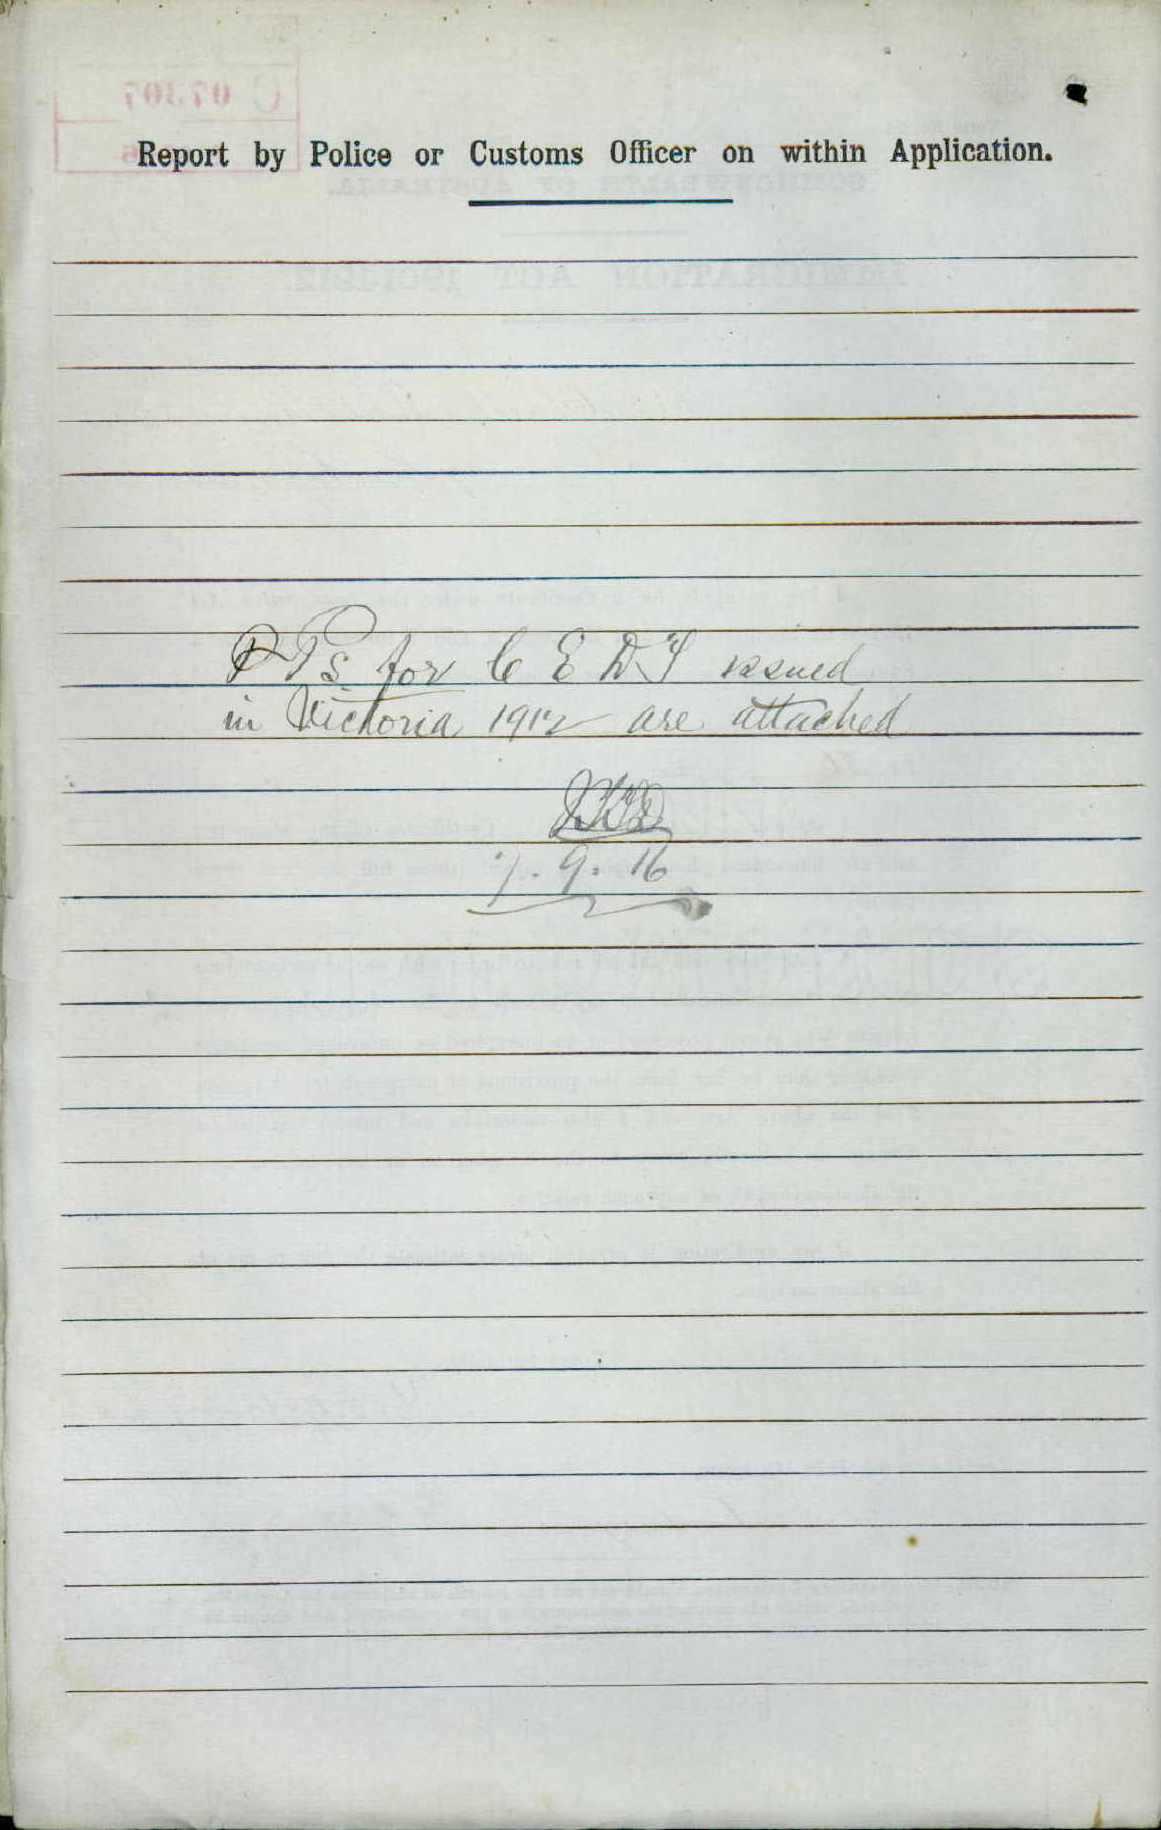 Report by Police or Customs Officer on within Application.
P Ps for C E D T issued
in Victoria 1912 are attached
7. 9. 16